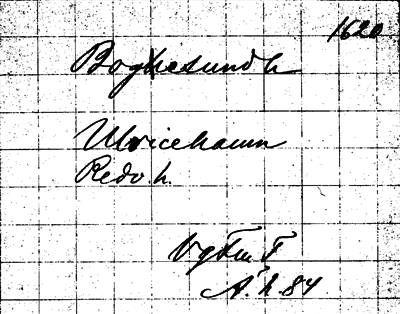 1620
Bogesund h
Ulricehamn
Redv. h.
Vg Fm. F
A. h. 84